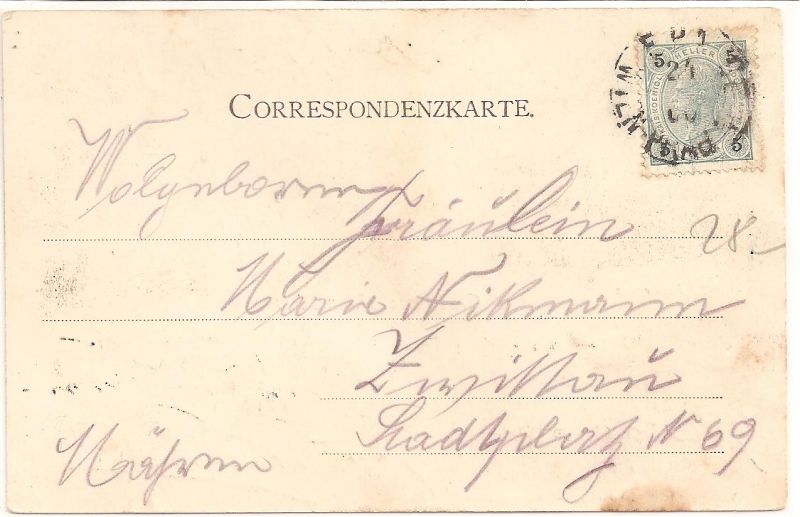 CORRESPONDENZKARTE.
5 HELLER 5
5 5
24
Wolgeboren
Fräulein
28
Marie Nikmann
Zwittau
Stadtplatz N 69
Mähren